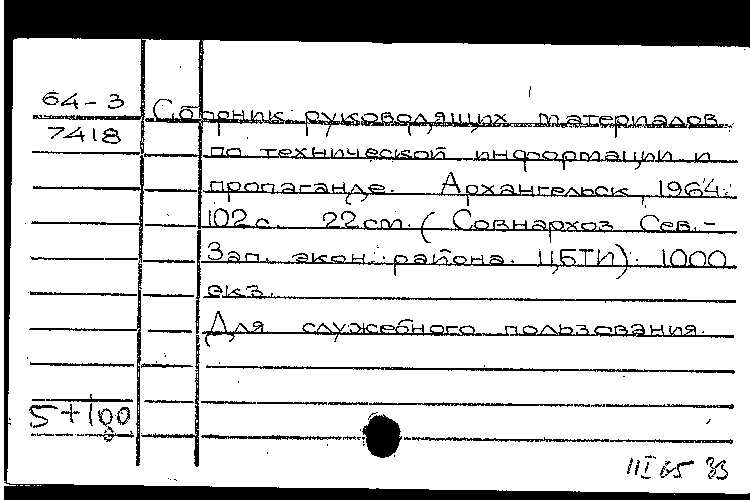 64-3 Сборник руководящих материалов
7418
по технической информации и
пропаганде. Архангельск, 1964.
102 с. 22 cm. (Совнархоз Сев.-
Зап. экон. района. ЦБТИ). 1000
экз.
Для служебного пользования.
5+100
8
III 65